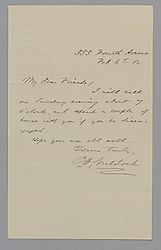 353 Fourth Avenue
Feb 6th 82
My dear Friends!
I will call
on Sunday evening about 7
o'clock, and spend a couple of
hours with you if you be disen-
gaged.
Hope you are all well.
Yours truly,